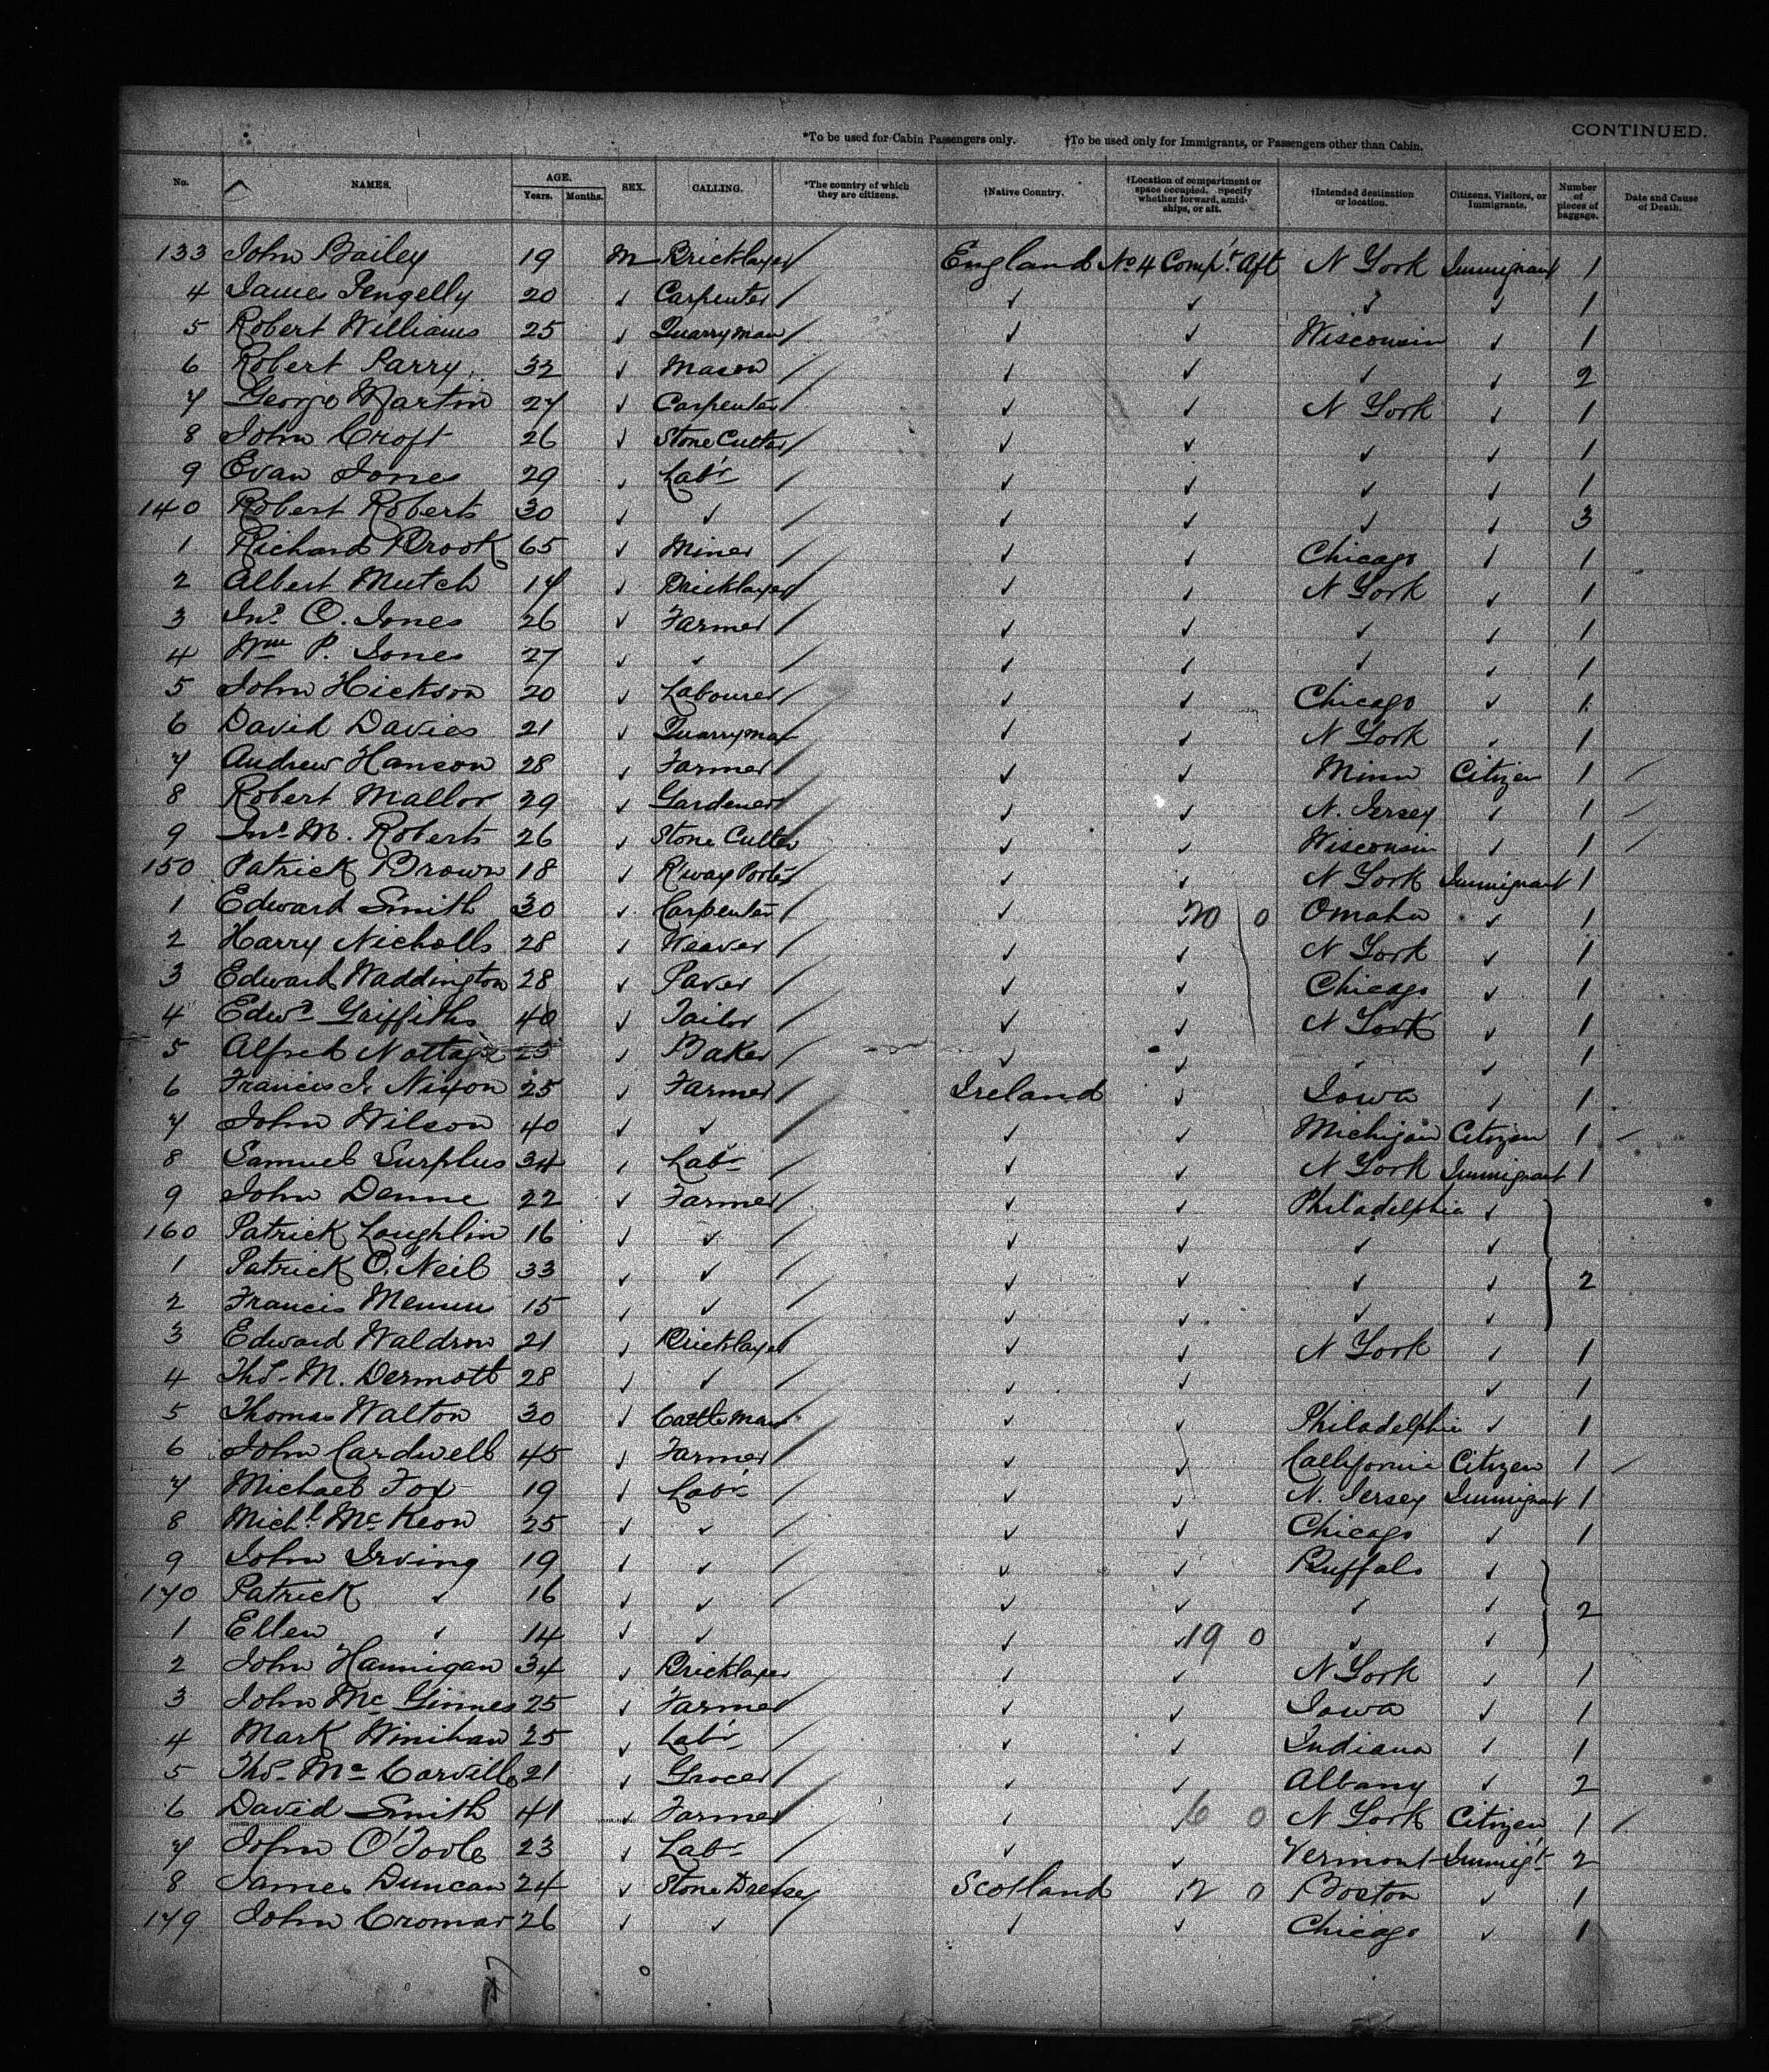 CONTINUED.
*To be used for Cabin Passengers only. †To be used only for Immigrants, or Passengers other than Cabin.
No. NAMES. AGE. Years. Months. SEX. CALLING. *The country of which they are citizens. †Native Country. †Location of compartment or space occupied. Specify whether forward, amidships, or aft. †Intended destination or location. Citizens, Visitors, or Immigrants. Number of pieces of baggage. Date and Cause of Death.
133 John Bailey 19 M Bricklayer / England No 4 Comp't Aft N York Immigrant 1
4 James Pengelly 20 ✓ Carpenter / ✓ ✓ ✓ ✓ 1
5 Robert Williams 25 ✓ Quarryman / ✓ ✓ Wisconsin ✓ 1
6 Robert Parry 32 ✓ Mason / ✓ ✓ ✓ ✓ 2
7 George Martin 27 ✓ Carpenter / ✓ ✓ N York ✓ 1
8 John Croft 26 ✓ Stone Cutter / ✓ ✓ ✓ ✓ 1
9 Evan Jones 29 ✓ Labr / ✓ ✓ ✓ ✓ 1
140 Robert Roberts 30 ✓ ✓ / ✓ ✓ ✓ ✓ 3
1 Richard Brook 65 ✓ Miner / ✓ ✓ Chicago ✓ 1
2 Albert Mutch 17 ✓ Bricklayer / ✓ ✓ N York ✓ 1
3 Jno. O. Jones 26 ✓ Farmer / ✓ ✓ ✓ ✓ 1
4 Wm P. Jones 27 ✓ ✓ / ✓ ✓ ✓ ✓ 1
5 John Hickson 20 ✓ Labourer / ✓ ✓ Chicago ✓ 1
6 David Davies 21 ✓ Quarryman ✓ ✓ N York ✓ 1
7 Andrew Hanson 28 ✓ Farmer / ✓ ✓ Minn Citizen 1 /
8 Robert Mallor 29 ✓ Gardener / ✓ ✓ N. Jersey ✓ 1 /
9 Jno. M. Roberts 26 ✓ Stone Cutter ✓ ✓ Wisconsin ✓ 1 /
150 Patrick Brown 18 ✓ R'way Porter / ✓ ✓ N York Immigrant 1
1 Edward Smith 30 ✓ Carpenter / ✓ 20 0 Omaha ✓ 1
2 Harry Nicholls 28 ✓ Weaver / ✓ ✓ N York ✓ 1
3 Edward Waddington 28 ✓ Paver / ✓ ✓ Chicago ✓ 1
4 Edwd Griffiths 40 ✓ Tailor / ✓ ✓ N York ✓ 1
5 Alfred Nottage 25 ✓ Baker / ✓ ✓ ✓ ✓ 1
6 Francis J. Nixon 25 ✓ Farmer / Ireland ✓ Iowa ✓ 1
7 John Wilson 40 ✓ ✓ / ✓ ✓ Michigan Citizen 1 /
8 Samuel Surplus 34 ✓ Labr / ✓ ✓ N York Immigrant 1
9 John Denne 22 ✓ Farmer / ✓ ✓ Philadelphia ✓
160 Patrick Loughlin 16 ✓ ✓ / ✓ ✓ ✓ ✓
1 Patrick O'Neil 33 ✓ ✓ / ✓ ✓ ✓ ✓ 2
2 Francis 15 ✓ ✓ / ✓ ✓ ✓ ✓
3 Edward Waldron 21 ✓ Bricklayer ✓ ✓ N York ✓ 1
4 Thos. M. Dermott 28 ✓ ✓ / ✓ ✓ ✓ 1
5 Thomas Walton 30 ✓ Cattle Man ✓ ✓ Philadelphia ✓ 1
6 John Cardwell 45 ✓ Farmer / ✓ ✓ California Citizen 1 /
7 Michael Fox 19 ✓ Labr / ✓ ✓ N. Jersey Immigrant 1
8 Michl. McKeon 25 ✓ ✓ / ✓ ✓ Chicago ✓ 1
9 John Irving 19 ✓ ✓ / ✓ ✓ Buffalo ✓
170 Patrick ✓ 16 ✓ ✓ / ✓ ✓ ✓ ✓ 2
1 Ellen ✓ 14 ✓ ✓ ✓ 19 0 ✓ ✓
2 John Hannigan 34 ✓ Bricklayer ✓ ✓ N York ✓ 1
3 John McGinnes 25 ✓ Farmer / ✓ ✓ Iowa ✓ 1
4 Mark Winihan 25 ✓ Labr / ✓ ✓ Indiana ✓ 1
5 Thos. McCarville 21 ✓ Grocer / ✓ ✓ Albany ✓ 2
6 David Smith 41 ✓ Farmer / ✓ 6 0 N York Citizen 1 /
7 John O'Toole 23 ✓ Labr / ✓ ✓ Vermont Immigt 2
8 James Duncan 24 ✓ Stone Dresser / Scotland 12 0 Boston ✓ 1
179 John Cromar 26 ✓ ✓ / ✓ ✓ Chicago ✓ 1